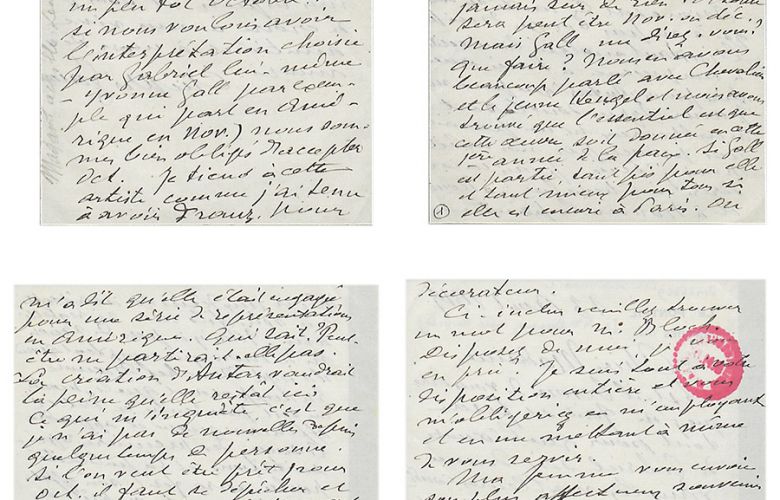 un peu tôt Octobre !
si nous voulons avoir
l'interprétation choisie
par Gabriel lui-même
- Yvonne Gall par exem-
ple qui part en Amé-
rique en Nov.) nous som-
mes bien obligés d'accepter
Oct. Je tiens à cette
artiste comme j'ai tenu
à avoir Franz, pour
jamais sûr de rien
sera peut être Nov. ou déc.
Mais Gall, me direz-vous,
que faire ? Nous en avons
beaucoup parlé avec Chevalier
et le jeune Heugel et nous avons
trouvé que l'essentiel est que
cette œuvre soit donnée en cette
1ère année de la paix. Si Gall
est partie, tant pis pour elle
et tant mieux pour tous si
elle est encore à Paris. On
1
m'a dit qu'elle était engagée
pour une série de représentations
en Amérique. Qui sait ? Peut-
être ne partira-t-elle pas.
La création d'Antar vaudrait
la peine qu'elle restât ici
Ce qui m'inquiète c'est que
je n'ai pas de nouvelles depuis
quelque temps de personne.
Si l'on veut être prêt pour
Oct. il faut se dépêcher et
décorateur.
Ci-inclus veuillez trouver
un mot pour M. Bloch.
Disposez de moi, je vous
en prie ! Je suis tout à votre
disposition entière et vous
m'obligerez en m'employant
et en me mettant à même
de vous servir.
Ma femme vous envoie
son plus affectueux souvenir